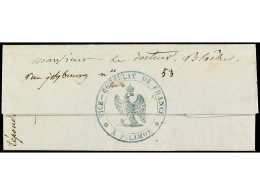 monsieur le docteur Blache
rue n° 53
VICE-CONSULAT DE FRANCE
A PALAMOS